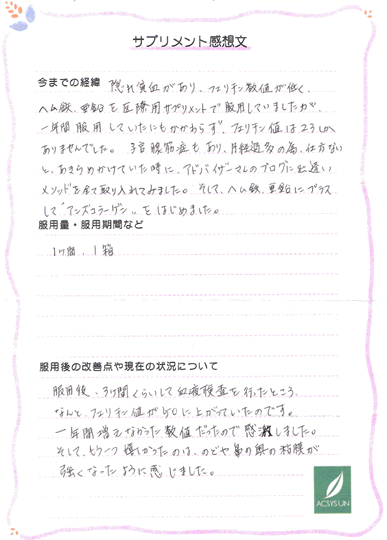 サプリメント感想文
今までの経緯 隠れ貧血があり、フェリチン数値が低く、
ヘム鉄、亜鉛を医療用サプリメントで服用していましたが、
一年間服用していたにもかかわらず、フェリチン値は23しか
ありませんでした。子宮腺筋症もあり、月経過多の為、仕方ない
と、あきらめかけていた時に、アドバイザーマレのブログに出逢い
メソッドを全て取り入れてみました。そして、ヘム鉄、亜鉛にプラス
して"アンズコラーゲン"をはじめました。
服用量・服用期間など
1ヶ月間、1箱
服用後の改善点や現在の状況について
服用後、3ヶ月間くらいして血液検査を行ったところ、
なんと、フェリチン値が50に上がっていたのです。
一年間増えなかった数値だったので感激しました。
そして、もう一つ嬉しかったのは、のどや鼻の奥の粘膜が
強くなったように感じました。
ACSYSUN